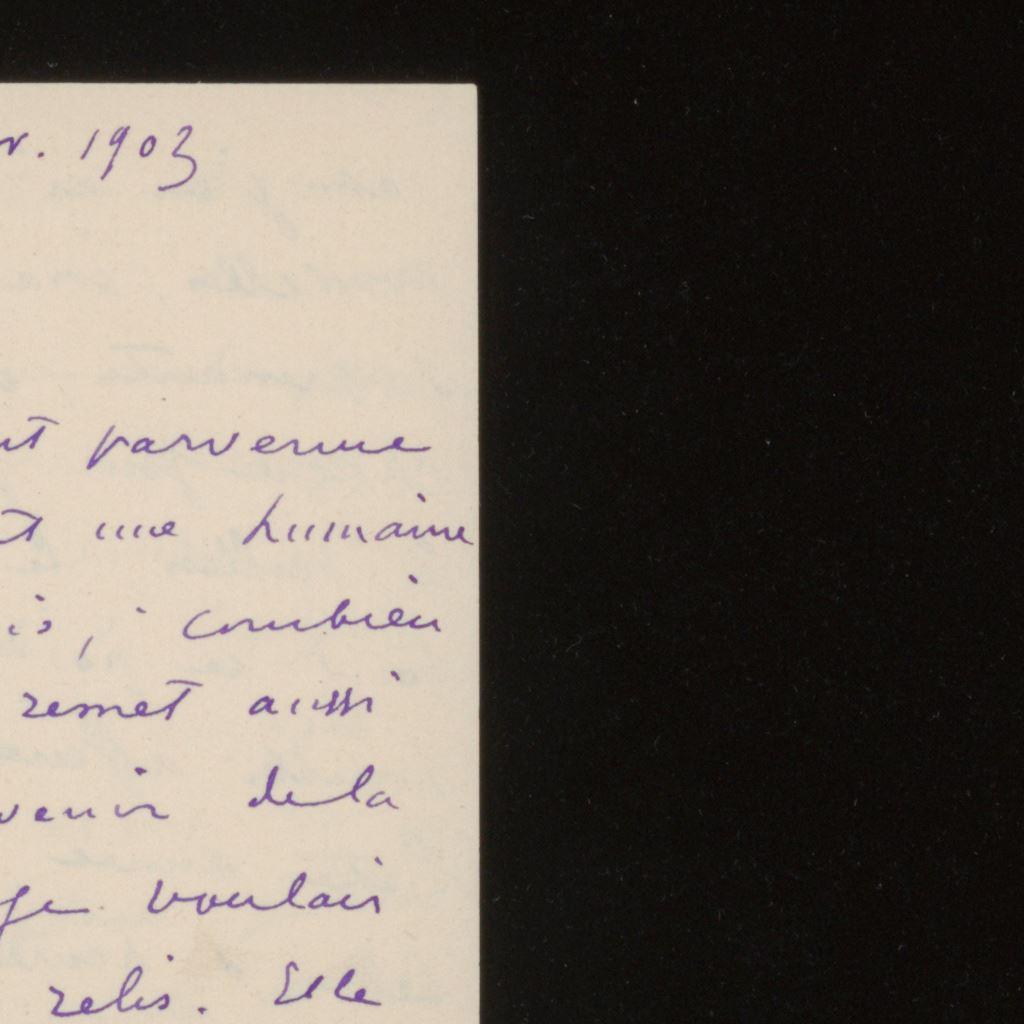 r. 1903
nt parvenue
t une humaine
is, combien
remet aussi
venir de la
je voulais
relis. Elle